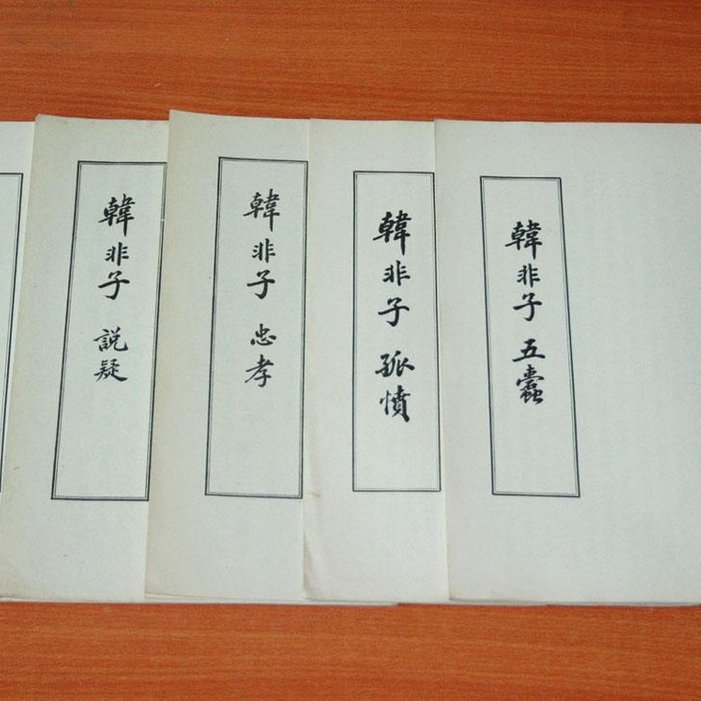 韓非子 五蠹
韓非子 孤憤
韓非子 忠孝
韓非子 說疑